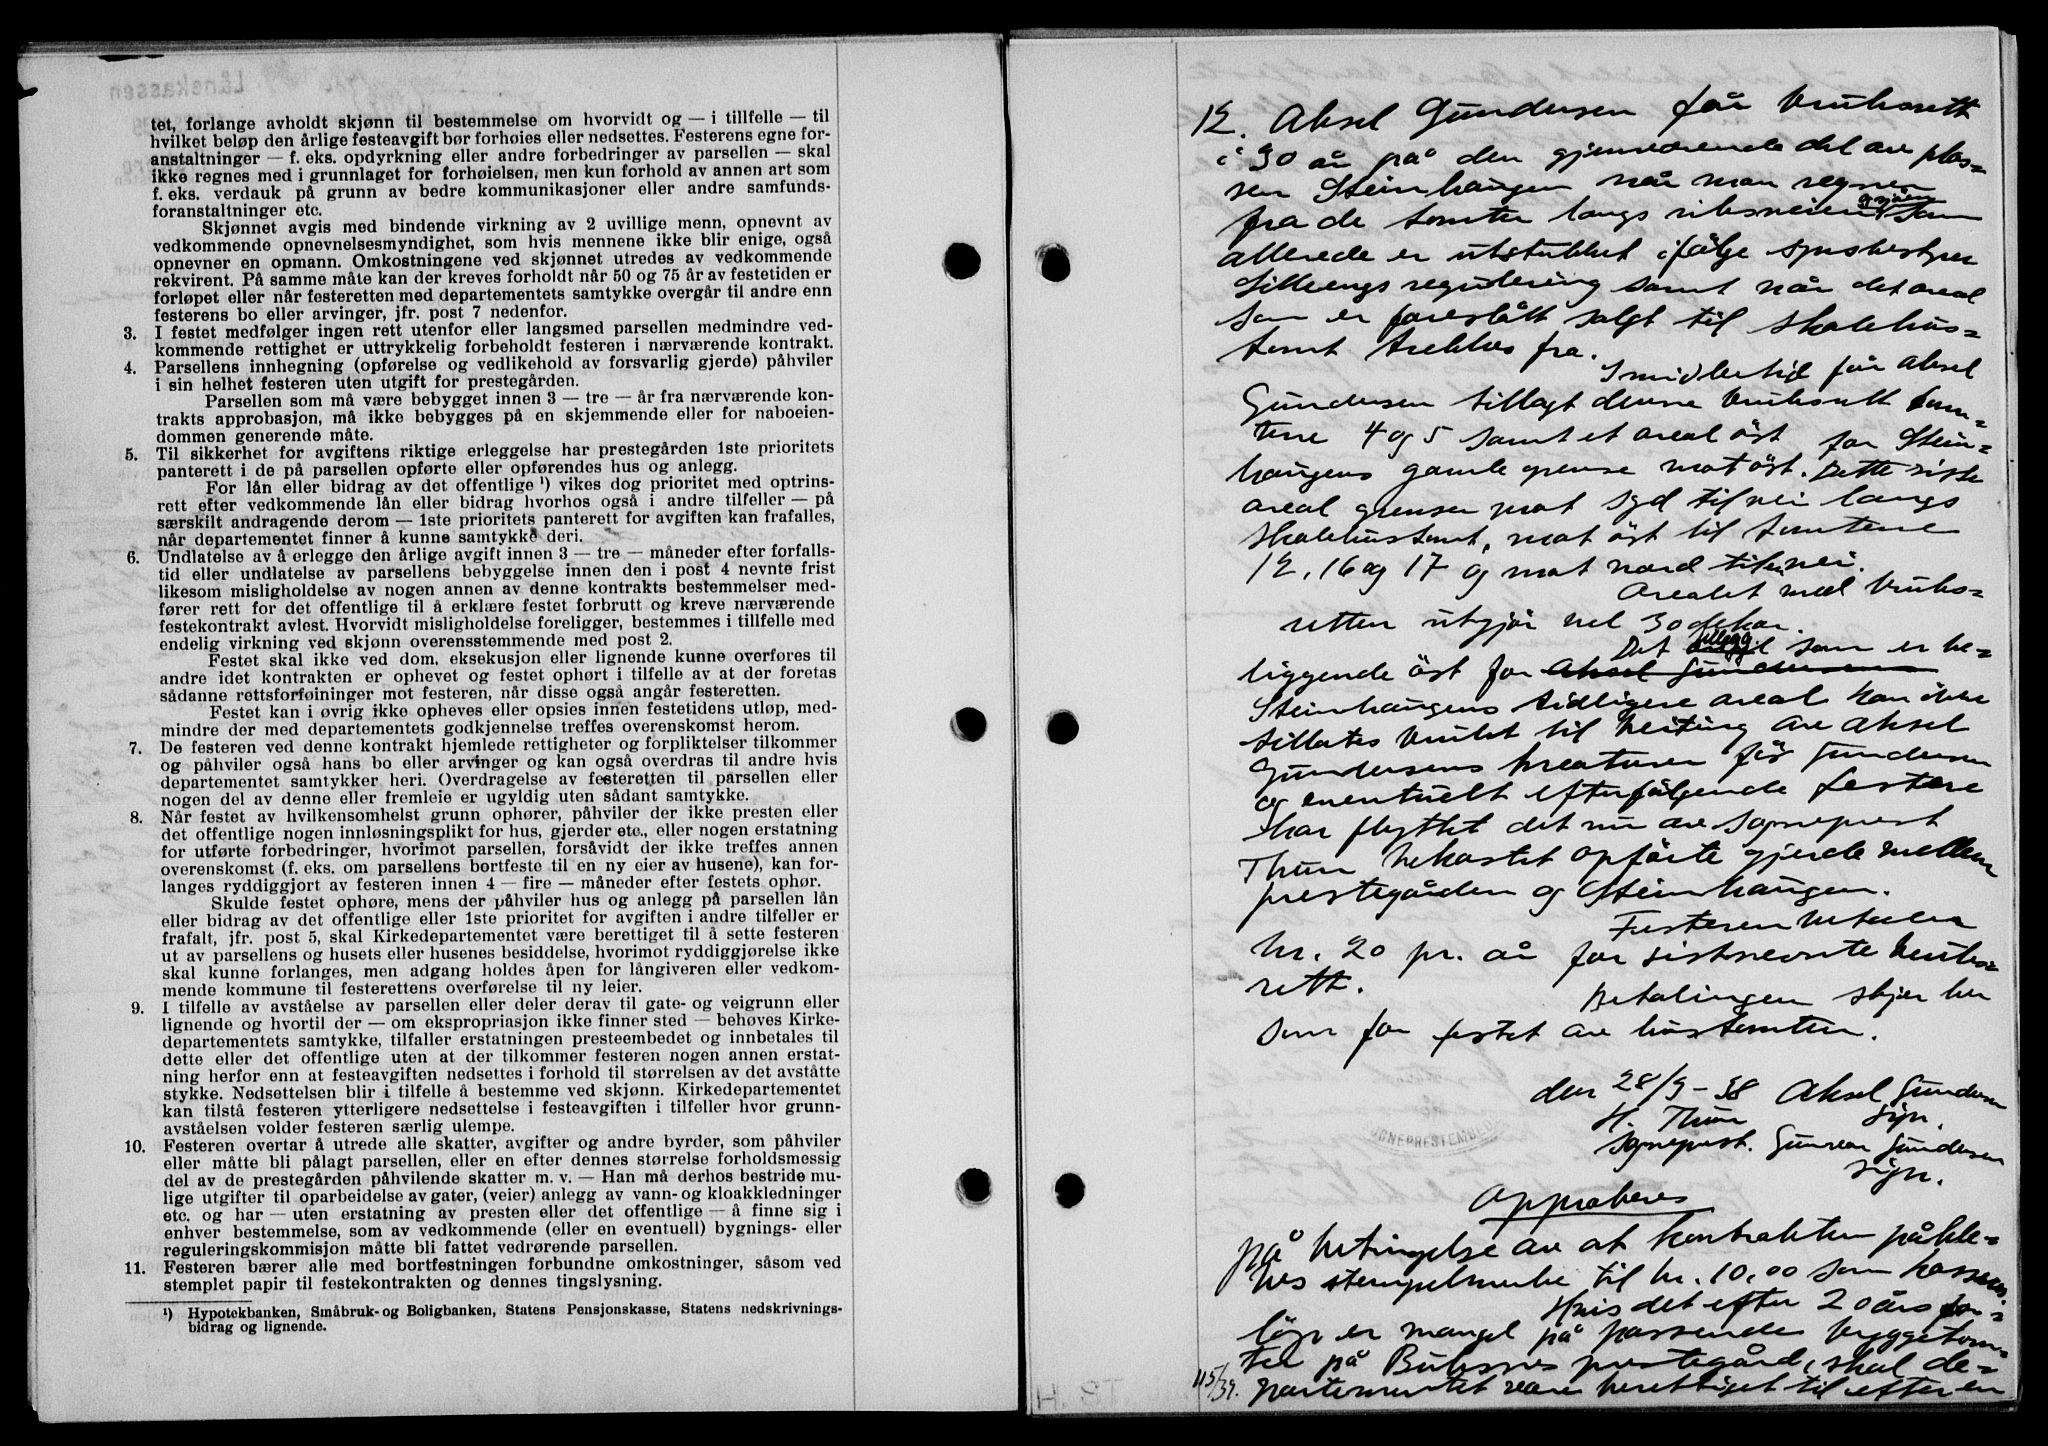 tet, forlange avholdt skjønn til bestemmelse om hvorvidt og — i tillfelle — til
hvilket beløp den årlige festeavgift bør forhøies eller nedsettes. Festerens egne for-
anstaltninger — f. eks. opdyrkning eller andre forbedringer av parsellen — skal
ikke regnes med i grunnlaget for forhøielsen, men kun forhold av annen art som
f. eks. verdauk på grunn av bedre kommunikasjoner eller andre samfunds-
foranstaltninger etc.
Skjønnet avgis med bindende virkning av 2 uvillige menn, opnevnt av
vedkommende opnevnelsesmyndighet, som hvis mennene ikke blir enige, også
opnevner en opmann. Omkostningene ved skjønnet utredes av vedkommende
rekvirent. På samme måte kan der kreves forholdt når 50 og 75 år av festetiden er
forløpet eller når festeretten med departementets samtykke overgår til andre enn
festerens bo eller arvinger, jfr. post 7 nedenfor.
3. I festet medfølger ingen rett utenfor eller langsmed parsellen medmindre ved-
kommende rettighet er uttrykkelig forbeholdt festeren i nærværende kontrakt.
4. Parsellens innhegning (opførelse og vedlikehold av forsvarlig gjerde) påhviler
i sin helhet festeren uten utgift for prestegården.
Parsellen som må være bebygget innen 3 — tre — år fra nærværende kon-
trakts approbasjon, må ikke bebygges på en skjemmende eller for naboeien-
dommen generende måte.
5. Til sikkerhet for avgiftens riktige erleggelse har prestegården 1ste prioritets
panterett i de på parsellen opførte eller opførendes hus og anlegg.
For lån eller bidrag av det offentlige ¹) vikes dog prioritet med optrins-
rett efter vedkommende lån eller bidrag hvorhos også i andre tilfeller — på
særskilt andragende derom — 1ste prioritets panterett for avgiften kan frafalles,
når departementet finner å kunne samtykke deri.
6. Undlatelse av å erlegge den årlige avgift innen 3 — tre — måneder efter forfalls-
tid eller undlatelse av parsellens bebyggelse innen den i post 4 nevnte frist
likesom misligholdelse av nogen annen av denne kontrakts bestemmelser med-
fører rett for det offentlige til å erklære festet forbrutt og kreve nærværende
festekontrakt avlest. Hvorvidt misligholdelse foreligger, bestemmes i tilfelle med
endelig virkning ved skjønn overensstemmende med post 2.
Festet skal ikke ved dom, eksekusjon eller lignende kunne overføres til
andre idet kontrakten er ophevet og festet ophørt i tilfelle av at der foretas
sådanne rettsforføininger mot festeren, når disse også angår festeretten.
Festet kan i øvrig ikke opheves eller opsies innen festetidens utløp, med-
mindre der med departementets godkjennelse treffes overenskomst herom.
7. De festeren ved denne kontrakt hjemlede rettigheter og forpliktelser tilkommer
og påhviler også hans bo eller arvinger og kan også overdras til andre hvis
departementet samtykker heri. Overdragelse av festeretten til parsellen eller
nogen del av denne eller fremleie er ugyldig uten sådant samtykke.
8. Når festet av hvilkensomhelst grunn ophører, påhviler der ikke presten eller
det offentlige nogen innløsningsplikt for hus, gjerder etc., eller nogen erstatning
for utførte forbedringer, hvorimot parsellen, forsåvidt der ikke treffes annen
overenskomst (f. eks. om parsellens bortfeste til en ny eier av husene), kan for-
langes ryddiggjort av festeren innen 4 — fire — måneder efter festets ophør.
Skulde festet ophøre, mens der påhviler hus og anlegg på parsellen lån
eller bidrag av det offentlige eller 1ste prioritet for avgiften i andre tilfeller er
frafalt, jfr. post 5, skal Kirkedepartementet være berettiget til å sette festeren
ut av parsellens og husets eller husenes besiddelse, hvorimot ryddiggjørelse ikke
skal kunne forlanges, men adgang holdes åpen for långiveren eller vedkom-
mende kommune til festerettens overførelse til ny leier.
9. I tilfelle av avståelse av parsellen eller deler derav til gate- og veigrunn eller
lignende og hvortil der — om ekspropriasjon ikke finner sted — behøves Kirke-
departementets samtykke, tilfaller erstatningen presteembedet og innbetales til
dette eller det offentlige uten at der tilkommer festeren nogen annen erstat-
ning herfor enn at festeavgiften nedsettes i forhold til størrelsen av det avståtte
stykke. Nedsettelsen blir i tilfelle å bestemme ved skjønn. Kirkedepartementet
kan tilstå festeren ytterligere nedsettelse i festeavgiften i tilfeller hvor grunn-
avståelsen volder festeren særlig ulempe.
10. Festeren overtar å utrede alle skatter, avgifter og andre byrder, som påhviler
eller måtte bli pålagt parsellen, eller en efter dennes størrelse forholdsmessig
del av de prestegården påhvilende skatter m. v. — Han må derhos bestride mu-
lige utgifter til oparbeidelse av gater, (veier) anlegg av vann- og kloakkledninger
etc. og har — uten erstatning av presten eller det offentlige — å finne sig i
enhver bestemmelse, som av vedkommende (eller en eventuell) bygnings- eller
reguleringskommisjon måtte bli fattet vedrørende parsellen.
11. Festeren bærer alle med bortfestningen forbundne omkostninger, såsom ved
stemplet papir til festekontrakten og dennes tingslysning.
¹) Hypotekbanken, Småbruk- og Boligbanken, Statens Pensjonskasse, Statens nedskrivnings-
bidrag og lignende.
12. Aksel Gundersen får bruksrett
i 30 år på den gjenværende del av plas-
sen Steinhaugen når man regner
fra de tomter langs riksveien som
allerede er utstukket ifølge
Lillevengs regulering samt når det areal
som er foreslått solgt til skolehus-
tomt trekkes fra.
Imidlertid får Aksel
Gundersen tillagt denne bruksrett tom-
tene 4 og 5 samt et areal øst for Stein-
haugens gamle grense mot øst. Dette siste
areal grenser mot syd til vei langs
skolehustomt, mot øst til tomtene
12, 16 og 17 og mot nord til vei.
Arealet med bruks-
retten utgjør vel 30 dekar.
Det tillegg som er be-
liggende øst for Aksel Gundersens
Steinhaugens tidligere areal kan ikke
tillates brukt til beiting av Aksel
Gundersens kreaturer før Gundersen
og eventuelt efterfølgende festere
har flyttet det nu av sogneprest
Thun bekostet opførte gjerde mellem
prestegården og Steinhaugen.
Festeren betaler
kr. 20 pr. år for sistnevnte bruks-
rett.
Betalingen skjer her
som for festet av hustomten.
den 28/9-38 Aksel Gundersen
H. Thun sign.
Sogneprest. Gunvor Gundersen
sign.
OGNEPRESTEMBED
Approberes
på betingelse av at kontrakten påkle-
bes stempelmerke til kr. 10,00 som kasseres.
Hvis det efter 20 års for-
løp er mangel på passende byggetom-
ter på Buksnes prestegård, skal de-
115/39. partementet være berettiget til efter en